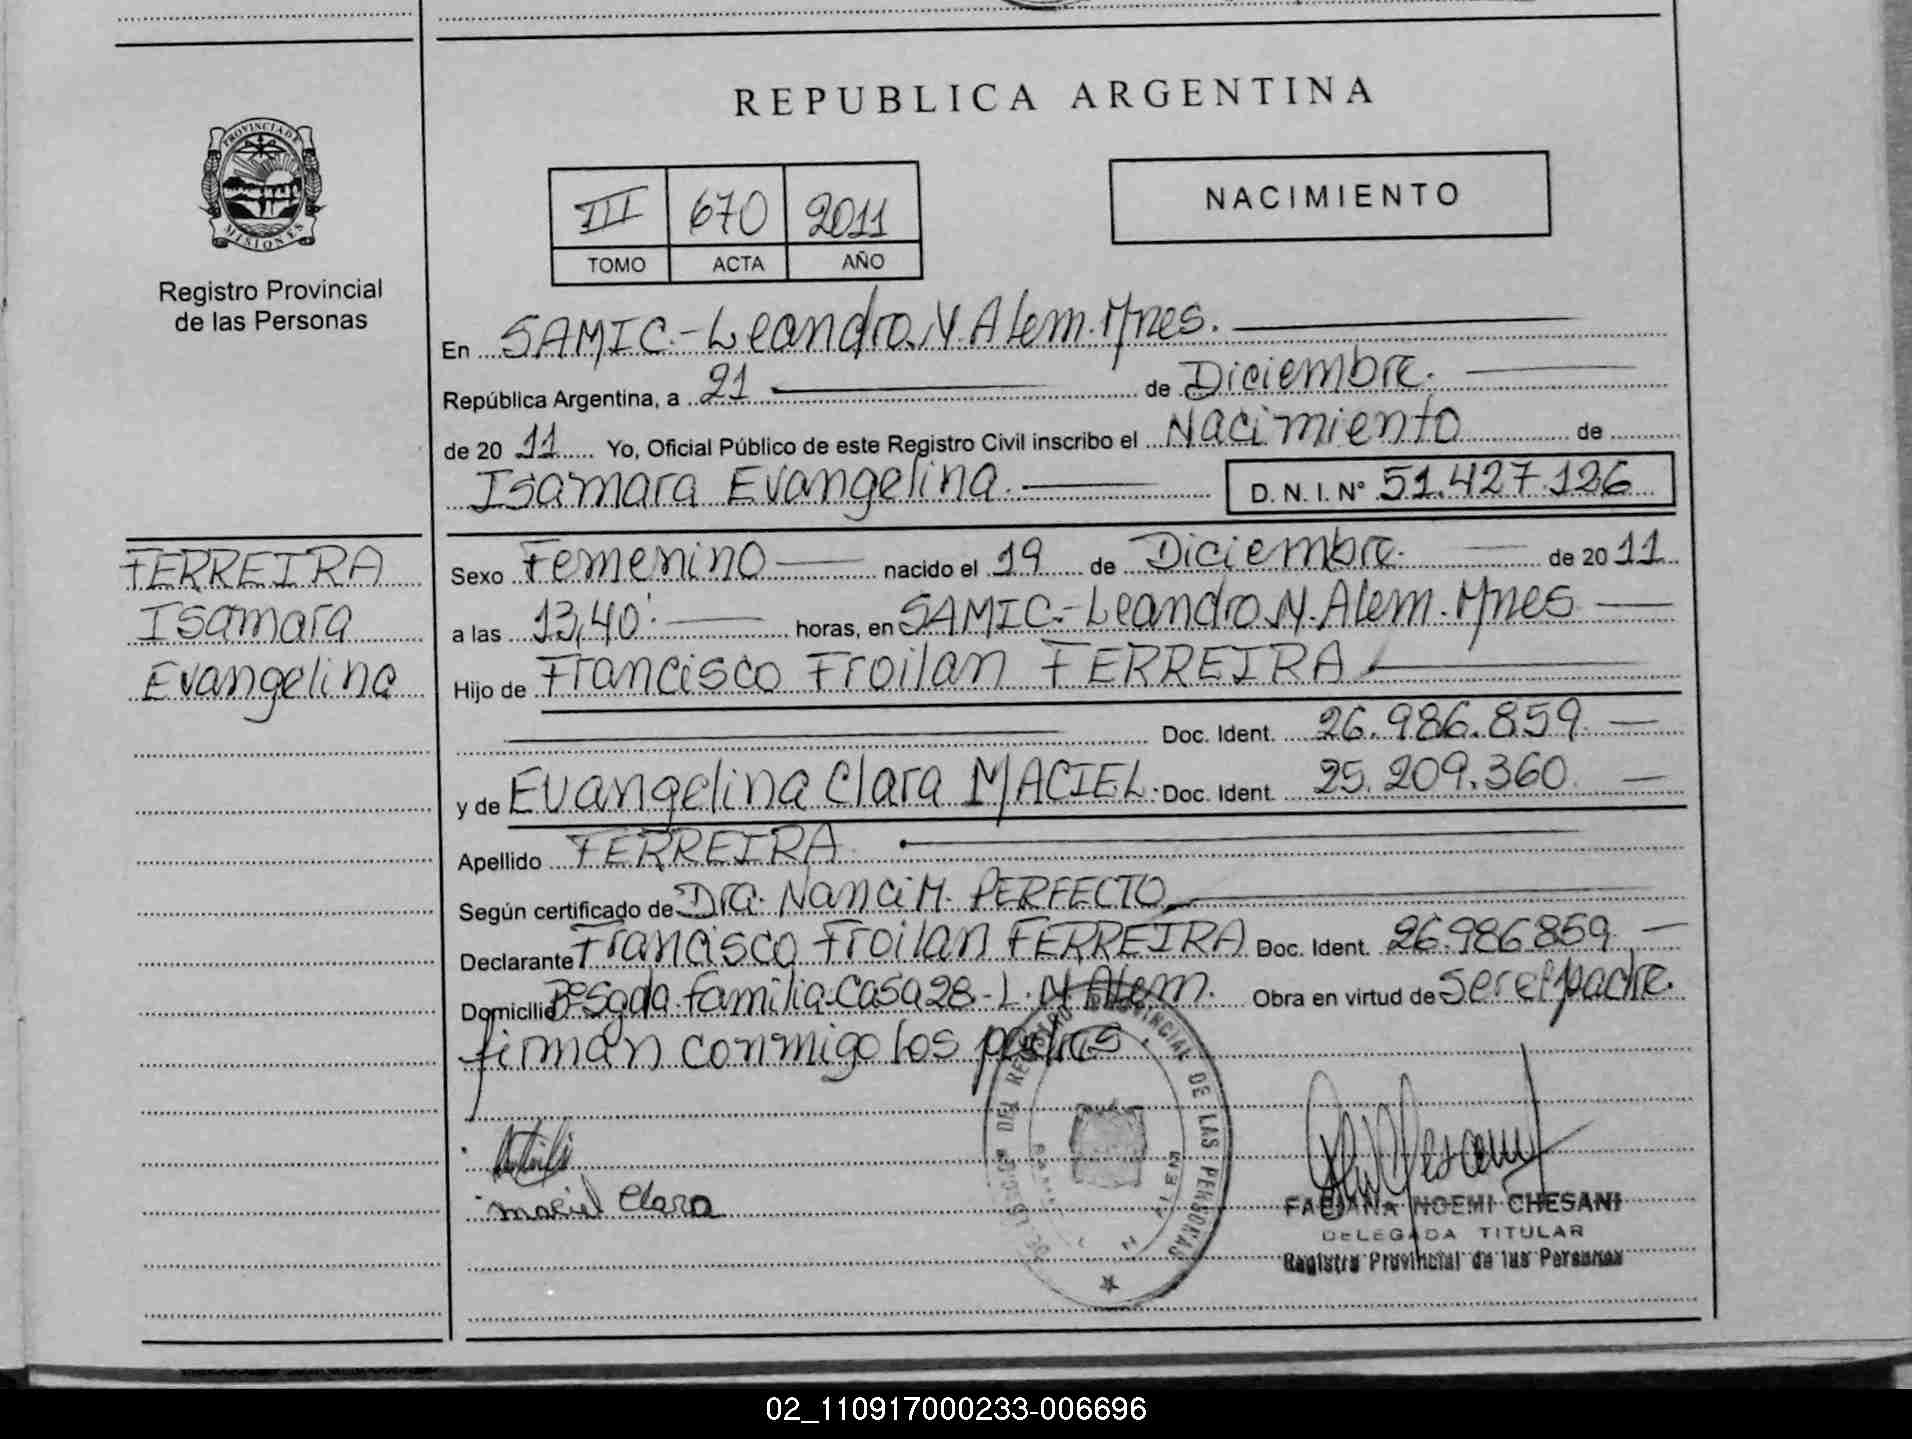 REPUBLICA ARGENTINA
PROVINCIA DE MISIONES
Registro Provincial
de las Personas
III 670 2011
TOMO ACTA AÑO
NACIMIENTO
En SAMIC.-Leandro N. Alem. Mnes.
República Argentina, a 21 de Diciembre.
de 20 11 Yo, Oficial Público de este Registro Civil inscribo el Nacimiento de
Isamara Evangelina. D. N. I. Nº 51.427.126
FERREIRA
Isamara
Evangelina
Sexo Femenino nacido el 19 de Diciembre. de 20 11
a las 13,40' horas, en SAMIC.-Leandro N. Alem. Mnes
Hijo de Francisco Froilan FERREIRA
Doc. Ident. 26.986.859.
y de Evangelina Clara MACIEL. Doc. Ident. 25.209.360.
Apellido FERREIRA
Según certificado de Dra. Nanci M. PERFECTO
Declarante Francisco Froilan FERREIRA Doc. Ident. 26.986.859
Domicilio Bº Sgda. familia-Casa 28-L. N. Alem. Obra en virtud de ser el padre.
firman conmigo los padres
DEL REGISTRO PROVINCIAL DE LAS PERSONAS
maciel Clara
FABIANA NOEMI CHESANI
DELEGADA TITULAR
Registro Provincial de las Personas
02_110917000233-006696